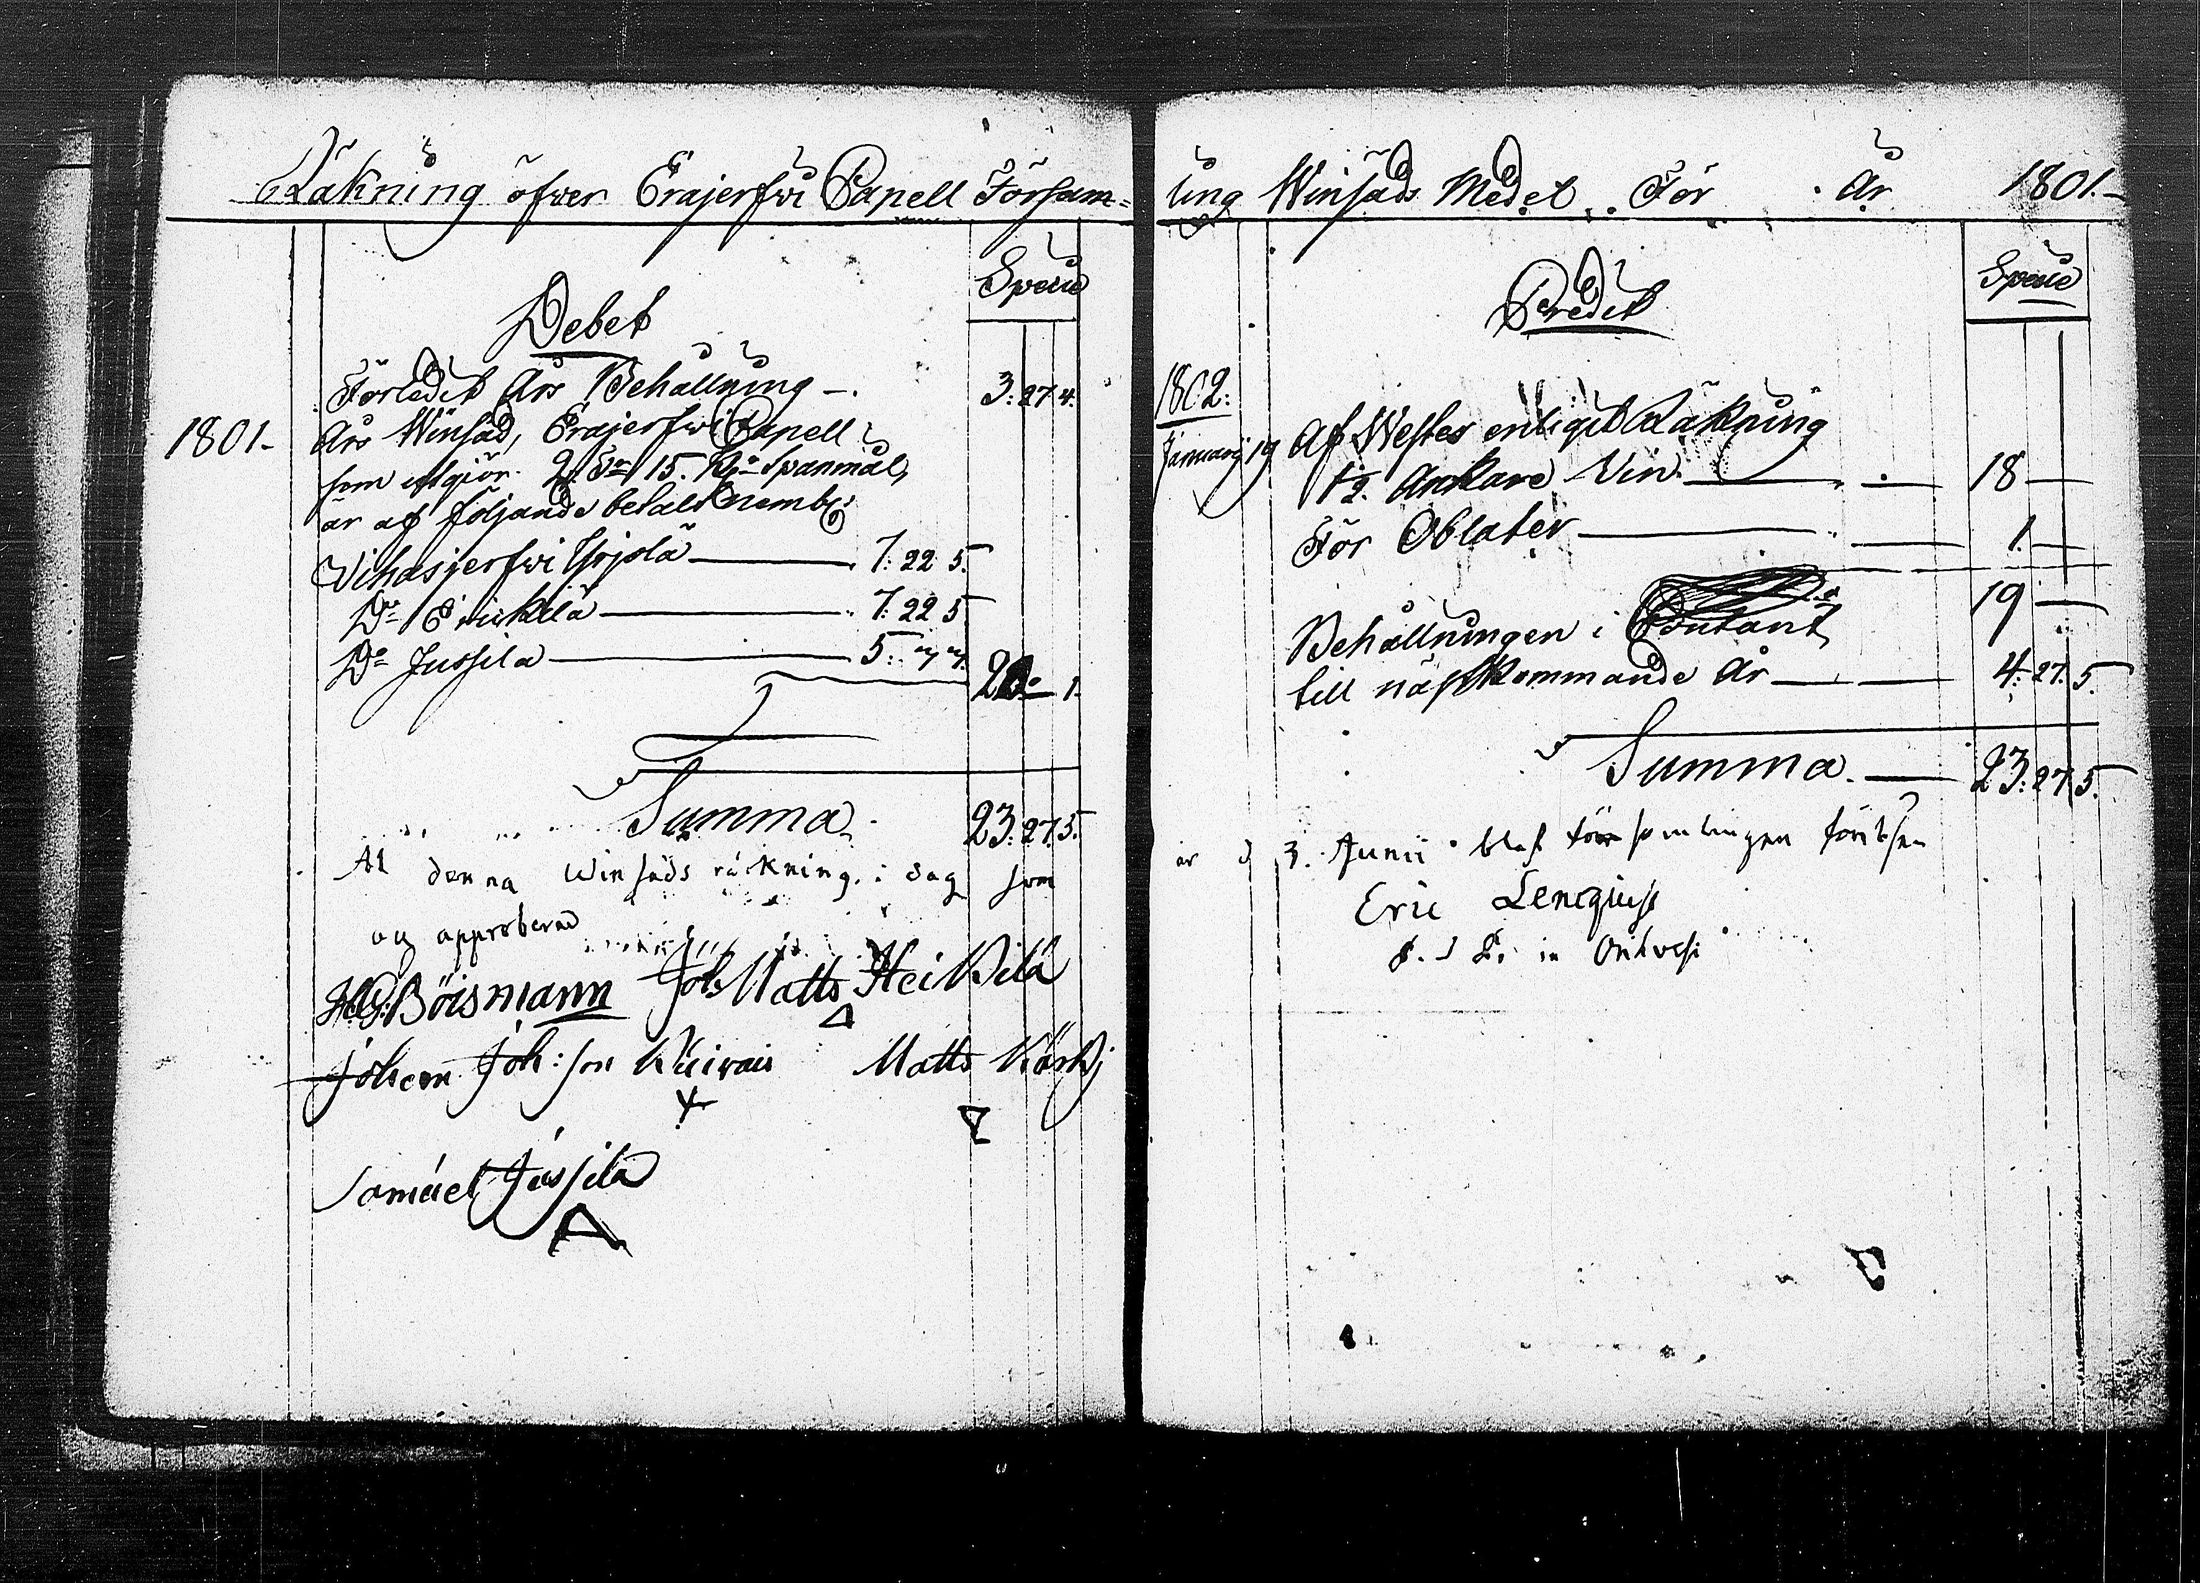 Räkning öfwer Erajerfwi Capell Församling Winsäds Medel För År 1801.
Debet
Specie
Förledit Års Behållning 3. 27. 4.
1801. Års Winsäd, Erajerfwi Capell
som utgiör 2. Tr 15. Kpr Spanmål,
är af följande betalt
Vihasjerfwi Yrjola 7. 22 5.
Do Erickilä 7. 22 5
Do Jussila 5. 
20. 1.
Summa 23. 27. 5.
At denna Winsäds räckning i dag som
og approberad
H.G. Böismann Joh. Matts Heikkilä
Johan Joh:son Matts Kärkj
Samuel Jussila
Credit
Specie
1802.
Januarij 19 Af Westes enligit Räkning
1½. Ankare Vin 18
För Oblater 1.
19
Behållningen i Contant
till nästkommande År 4. 27. 5.
Summa 23. 27. 5.
är d 3. Junii blef församlingen
Eric Lencquist
P. & P. in Orihvesi